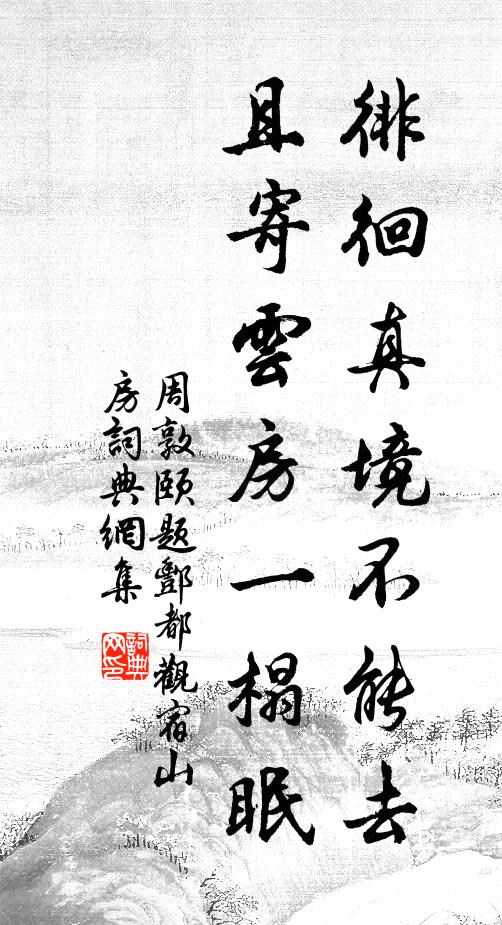 徘徊真境不能去
且寄雲房一榻眠
周敦頤題酆都觀宿山
房詞典網集
詞典网印